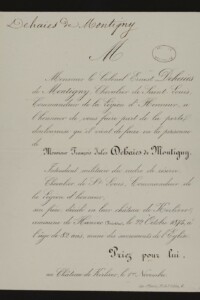 Dehaies de Montigny
M
Monsieur le Colonel Ernest Dehaies
de Montigny, Chevalier de Saint Louis,
Commandeur de la Légion d'Honneur, a
l'honneur de vous faire part de la perte
douloureuse qu'il vient de faire en la personne
de
Monsieur François Jules Dehaies de Montigny,
Intendant militaire du cadre de réserve
Chevalier de St Louis, Commandeur de la
Légion d'honneur
son frère décédé en son château de
commune de le 29 Octobre
l'âge de ans, muni des sacrements de l'Eglise.
Priez pour lui.
au Château de le 1er Novembre